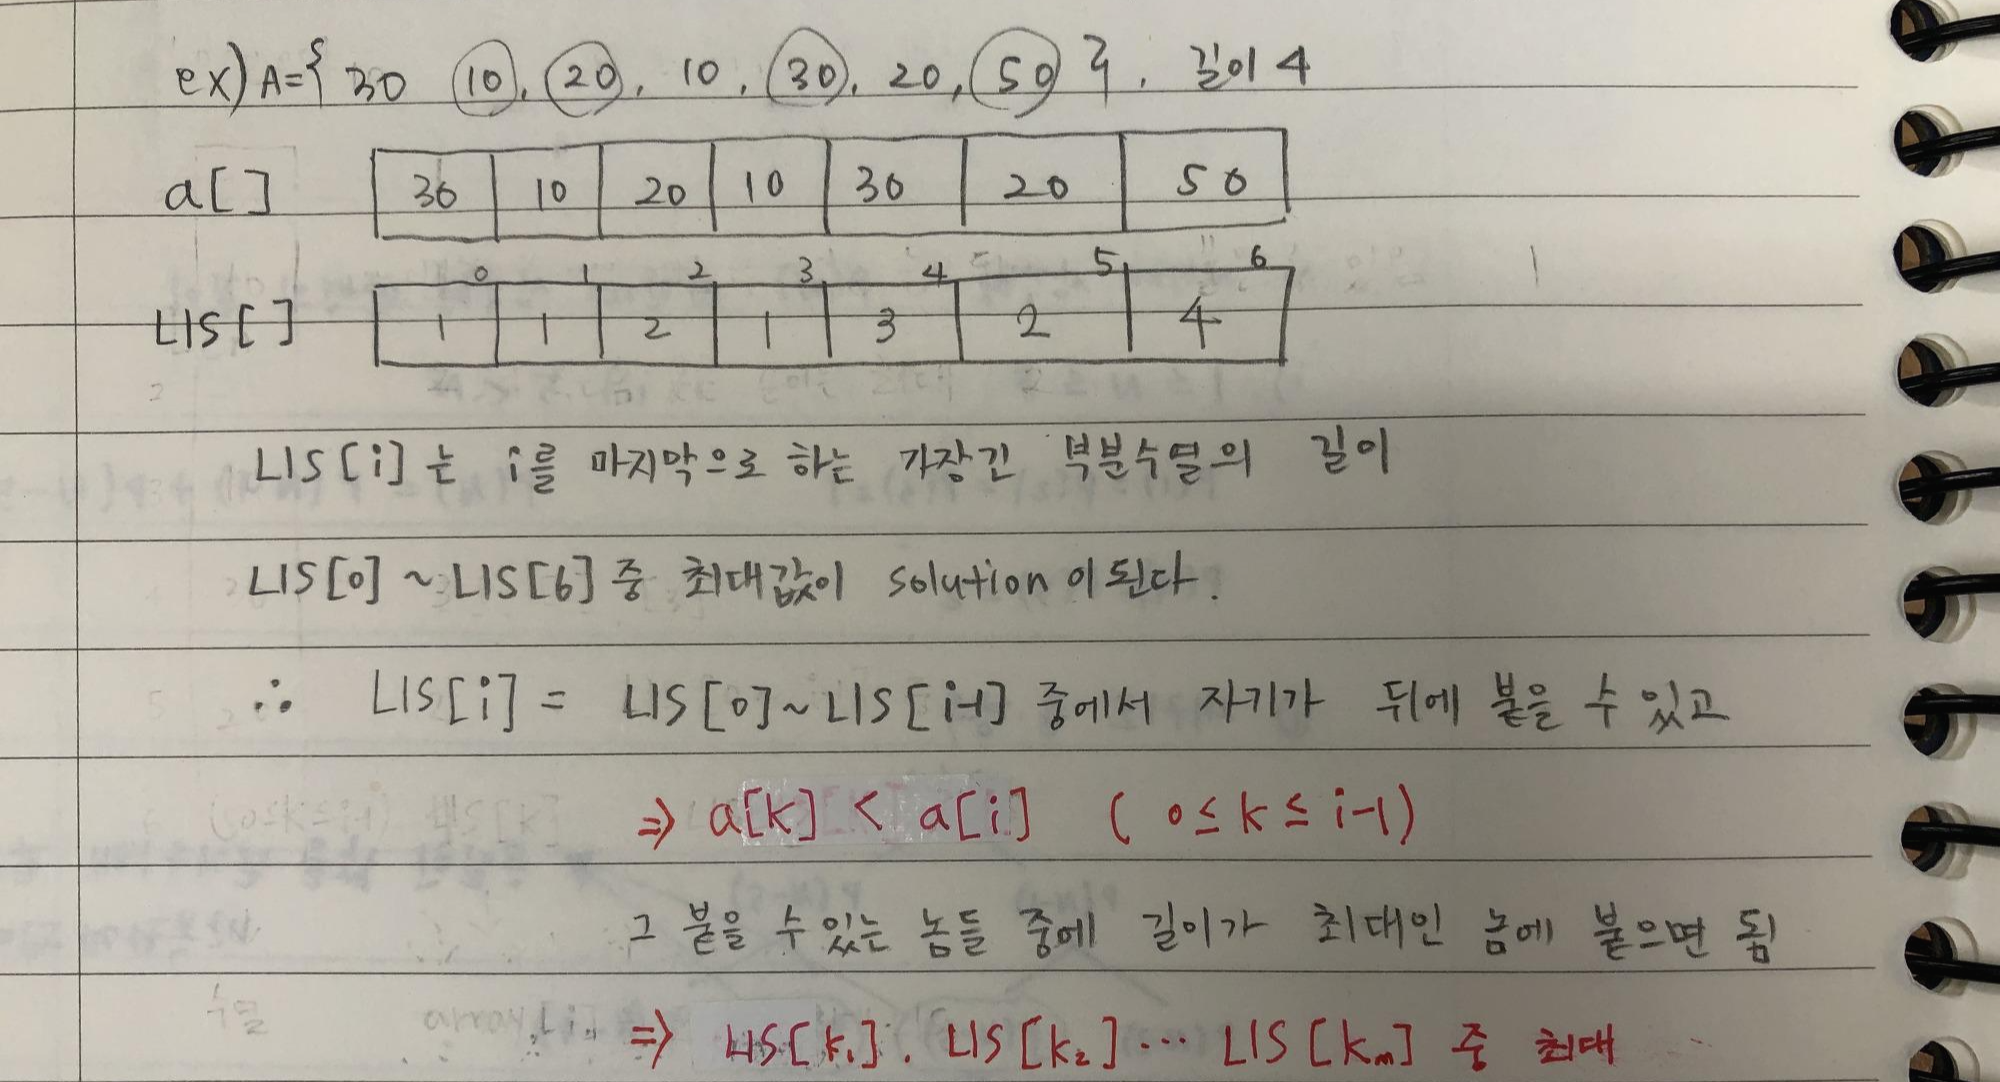 ex) A={ 30 10, 20, 10, 30, 20, 50 }, 길이 4
a[] 30 10 20 10 30 20 50
0 1 2 3 4 5 6
LIS[] 1 1 2 1 3 2 4
LIS[i]는 i를 마지막으로 하는 가장긴 부분수열의 길이
LIS[0] ~ LIS[6] 중 최대값이 solution이 된다.
∴ LIS[i] = LIS[0]~LIS[i-1] 중에서 자기가 뒤에 붙을 수 있고
⇒ a[k] < a[i] ( 0≤ k ≤ i-1)
그 붙을 수 있는 놈들 중에 길이가 최대인 놈에 붙으면 됨
⇒ LIS[k₁]. LIS[k₂] ... LIS[kₘ] 중 최대